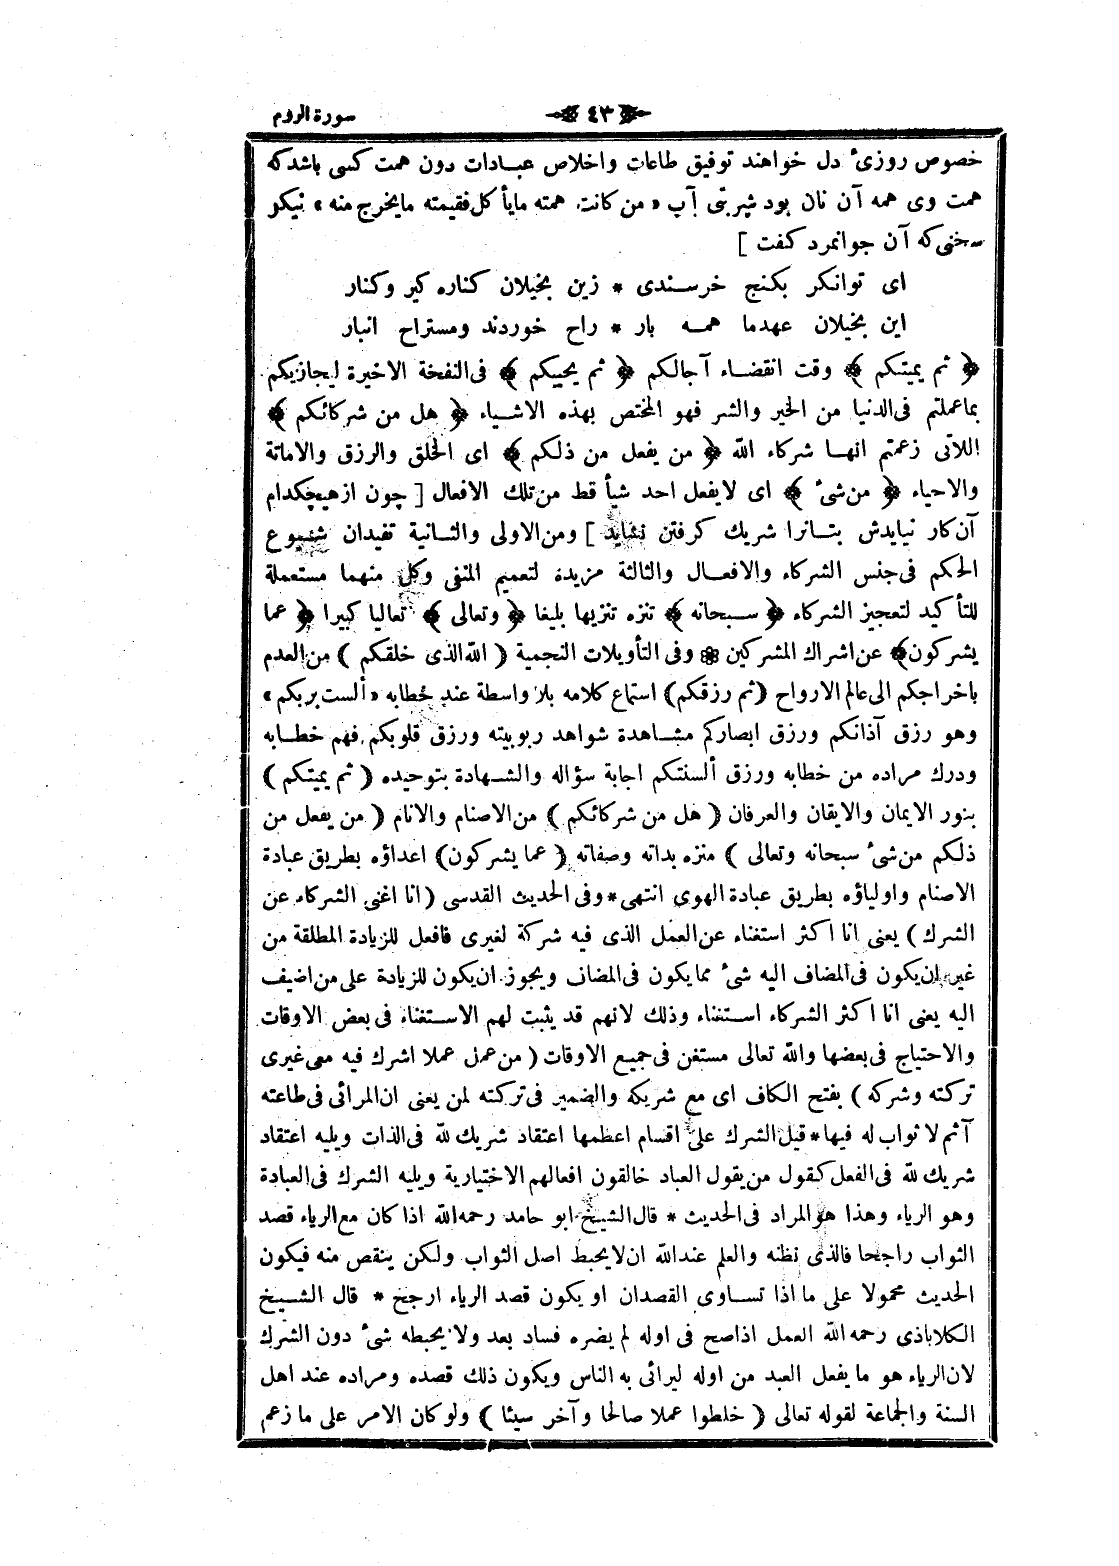 سورة الروم
﴿ ٤٣ ﴾
خصوص روزئ دل خواهند توفيق طاعات واخلاص عبادات دون همت كسى باشدكه
همت وى همه آن نان بود شربتى آب « من كانت همته مايأكل فقيمته مايخرج منه » نيكو
سخنى كه آن جوانمرد كفت ]
اى توانكر بكنج خرسندى * زين بخيلان كناره كير وكنار
اين بخيلان عهدما همه بار * راح خوردند ومستراح انبار
﴿ ثم يميتكم ﴾ وقت انقضاء آجالكم ﴿ ثم يحييكم ﴾ فى النفخة الاخيرة ليجازيكم
بماعملتم فى الدنيا من الخير والشر فهو المختص بهذه الاشياء ﴿ هل من شركائكم ﴾
اللاتى زعمتم انها شركاء الله ﴿ من يفعل من ذلكم ﴾ اى الخلق والرزق والاماتة
والاحياء ﴿ من شئ ﴾ اى لايفعل احد شيأ قط من تلك الافعال [ چون از هيچكدام
آن كار نيايدش بتانرا شريك كرفتن نشايد ] ومن الاولى والثانية تفيدان شيوع
الحكم فى جنس الشركاء والافعال والثالثة مزيدة لتعميم المنفى وكل منهما مستعملة
للتأكيد لتعجيز الشركاء ﴿ سبحانه ﴾ تنزه تنزيها بليغا ﴿ وتعالى ﴾ تعاليا كبيرا ﴿ عما
يشركون ﴾ عن اشراك المشركين ❁ وفى التأويلات النجمية ( الله الذى خلقكم ) من العدم
باخراجكم الى عالم الارواح (ثم رزقكم) استماع كلامه بلا واسطة عند خطابه « ألست بربكم »
وهو رزق آذانكم ورزق ابصاركم مشاهدة شواهد ربوبيته ورزق قلوبكم فهم خطابه
ودرك مراده من خطابه ورزق ألسنتكم اجابة سؤاله والشهادة بتوحيده ( ثم يميتكم )
بنور الايمان والايقان والعرفان ( هل من شركائكم ) من الاصنام والانام ( من يفعل من
ذلكم من شئ سبحانه وتعالى ) منزه بذاته وصفاته ( عما يشركون) اعداؤه بطريق عبادة
الاصنام واولياؤه بطريق عبادة الهوى انتهى * وفى الحديث القدسى ( انا اغنى الشركاء عن
الشرك ) يعنى انا اكثر استغناء عن العمل الذى فيه شركة لغيرى فافعل للزيادة المطلقة من
غير ان يكون فى المضاف اليه شئ مما يكون فى المضاف ويجوز ان يكون للزيادة على من اضيف
اليه يعنى انا اكثر الشركاء استغناء وذلك لانهم قد يثبت لهم الاستغناء فى بعض الاوقات
والاحتياج فى بعضها والله تعالى مستغن فى جميع الاوقات ( من عمل عملا اشرك فيه معى غيرى
تركته وشركه ) بفتح الكاف اى مع شريكه والضمير فى تركته لمن يعنى ان المرائى فى طاعته
آثم لا ثواب له فيها * قيل الشرك على اقسام اعظمها اعتقاد شريك لله فى الذات ويليه اعتقاد
شريك لله فى الفعل كقول من يقول العباد خالقون افعالهم الاختيارية ويليه الشرك فى العبادة
وهو الرياء وهذا هو المراد فى الحديث * قال الشيخ ابو حامد رحمه الله اذا كان مع الرياء قصد
الثواب راجحا فالذى نظنه والعلم عند الله ان لايحبط اصل الثواب ولكن ينقص منه فيكون
الحديث محمولا على ما اذا تساوى القصدان او يكون قصد الرياء ارجح * قال الشيخ
الكلاباذى رحمه الله العمل اذاصح فى اوله لم يضره فساد بعد ولا يحبطه شئ دون الشرك
لان الرياء هو ما يفعل العبد من اوله ليرائى به الناس ويكون ذلك قصده ومراده عند اهل
السنة والجماعة لقوله تعالى ( خلطوا عملا صالحا وآخر سيئا ) ولو كان الامر على ما زعم